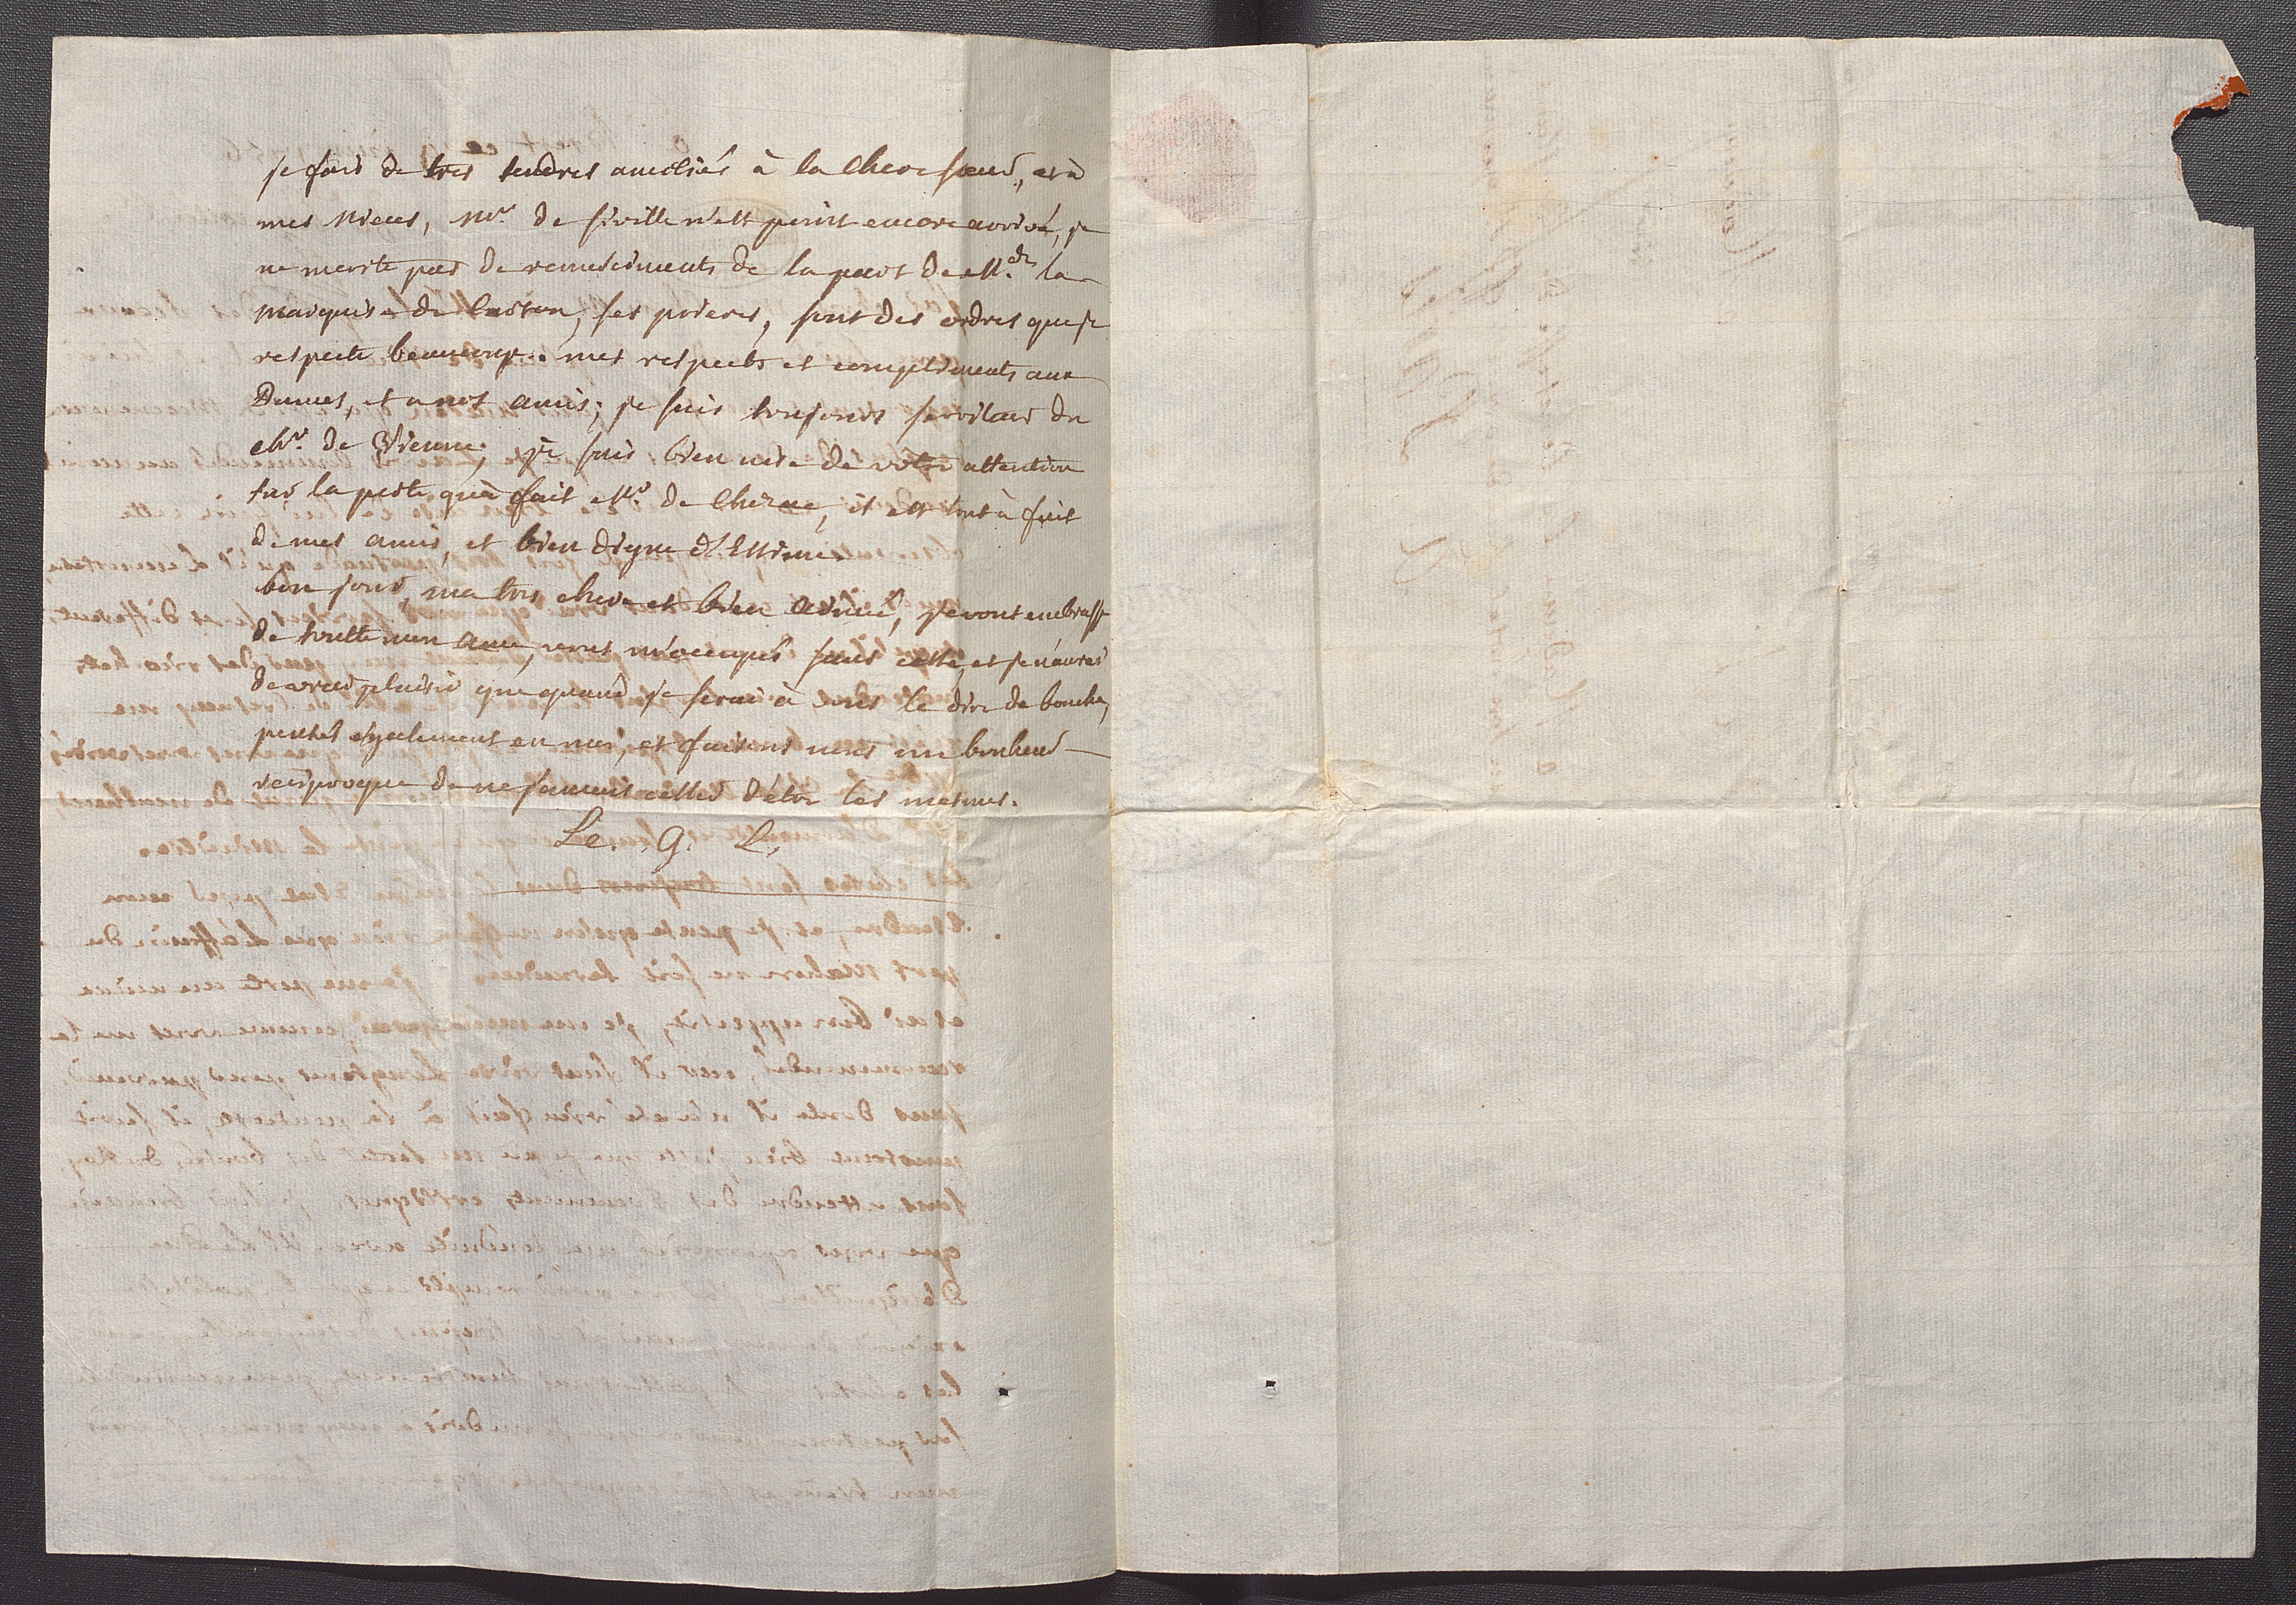 je fais de tres tendres amitiés à la chere sœur, et à
mes nieces, Mr. de seville n'est point encore arrivé, je
ne merite pas de remerciments de la part de Mde. la
marquise de Caston, ses prieres, sont des ordres que je
respecte beaucoup. mes respects et compliments aux
Dames, et a nos amis; je suis toujours serviteur du
chr. de Vienne; je suis bien aise de votre attention
sur la perte qu'a fait Mr. de Cherac, il est tout à fait
de mes amis, et bien digne d'estime
bon jour, ma tres chere et bien aimée, je vous embrasse
de toutte mon ame, vous m'occupés sans cesse, et je n'aurai
de vrai plaisir que quand je serai à vous le dire de bouche,
pensés également en moi, et faisons nous un bonheur
reciproque de ne jamais cesser d'etre les mesmes.
Le. G. L.